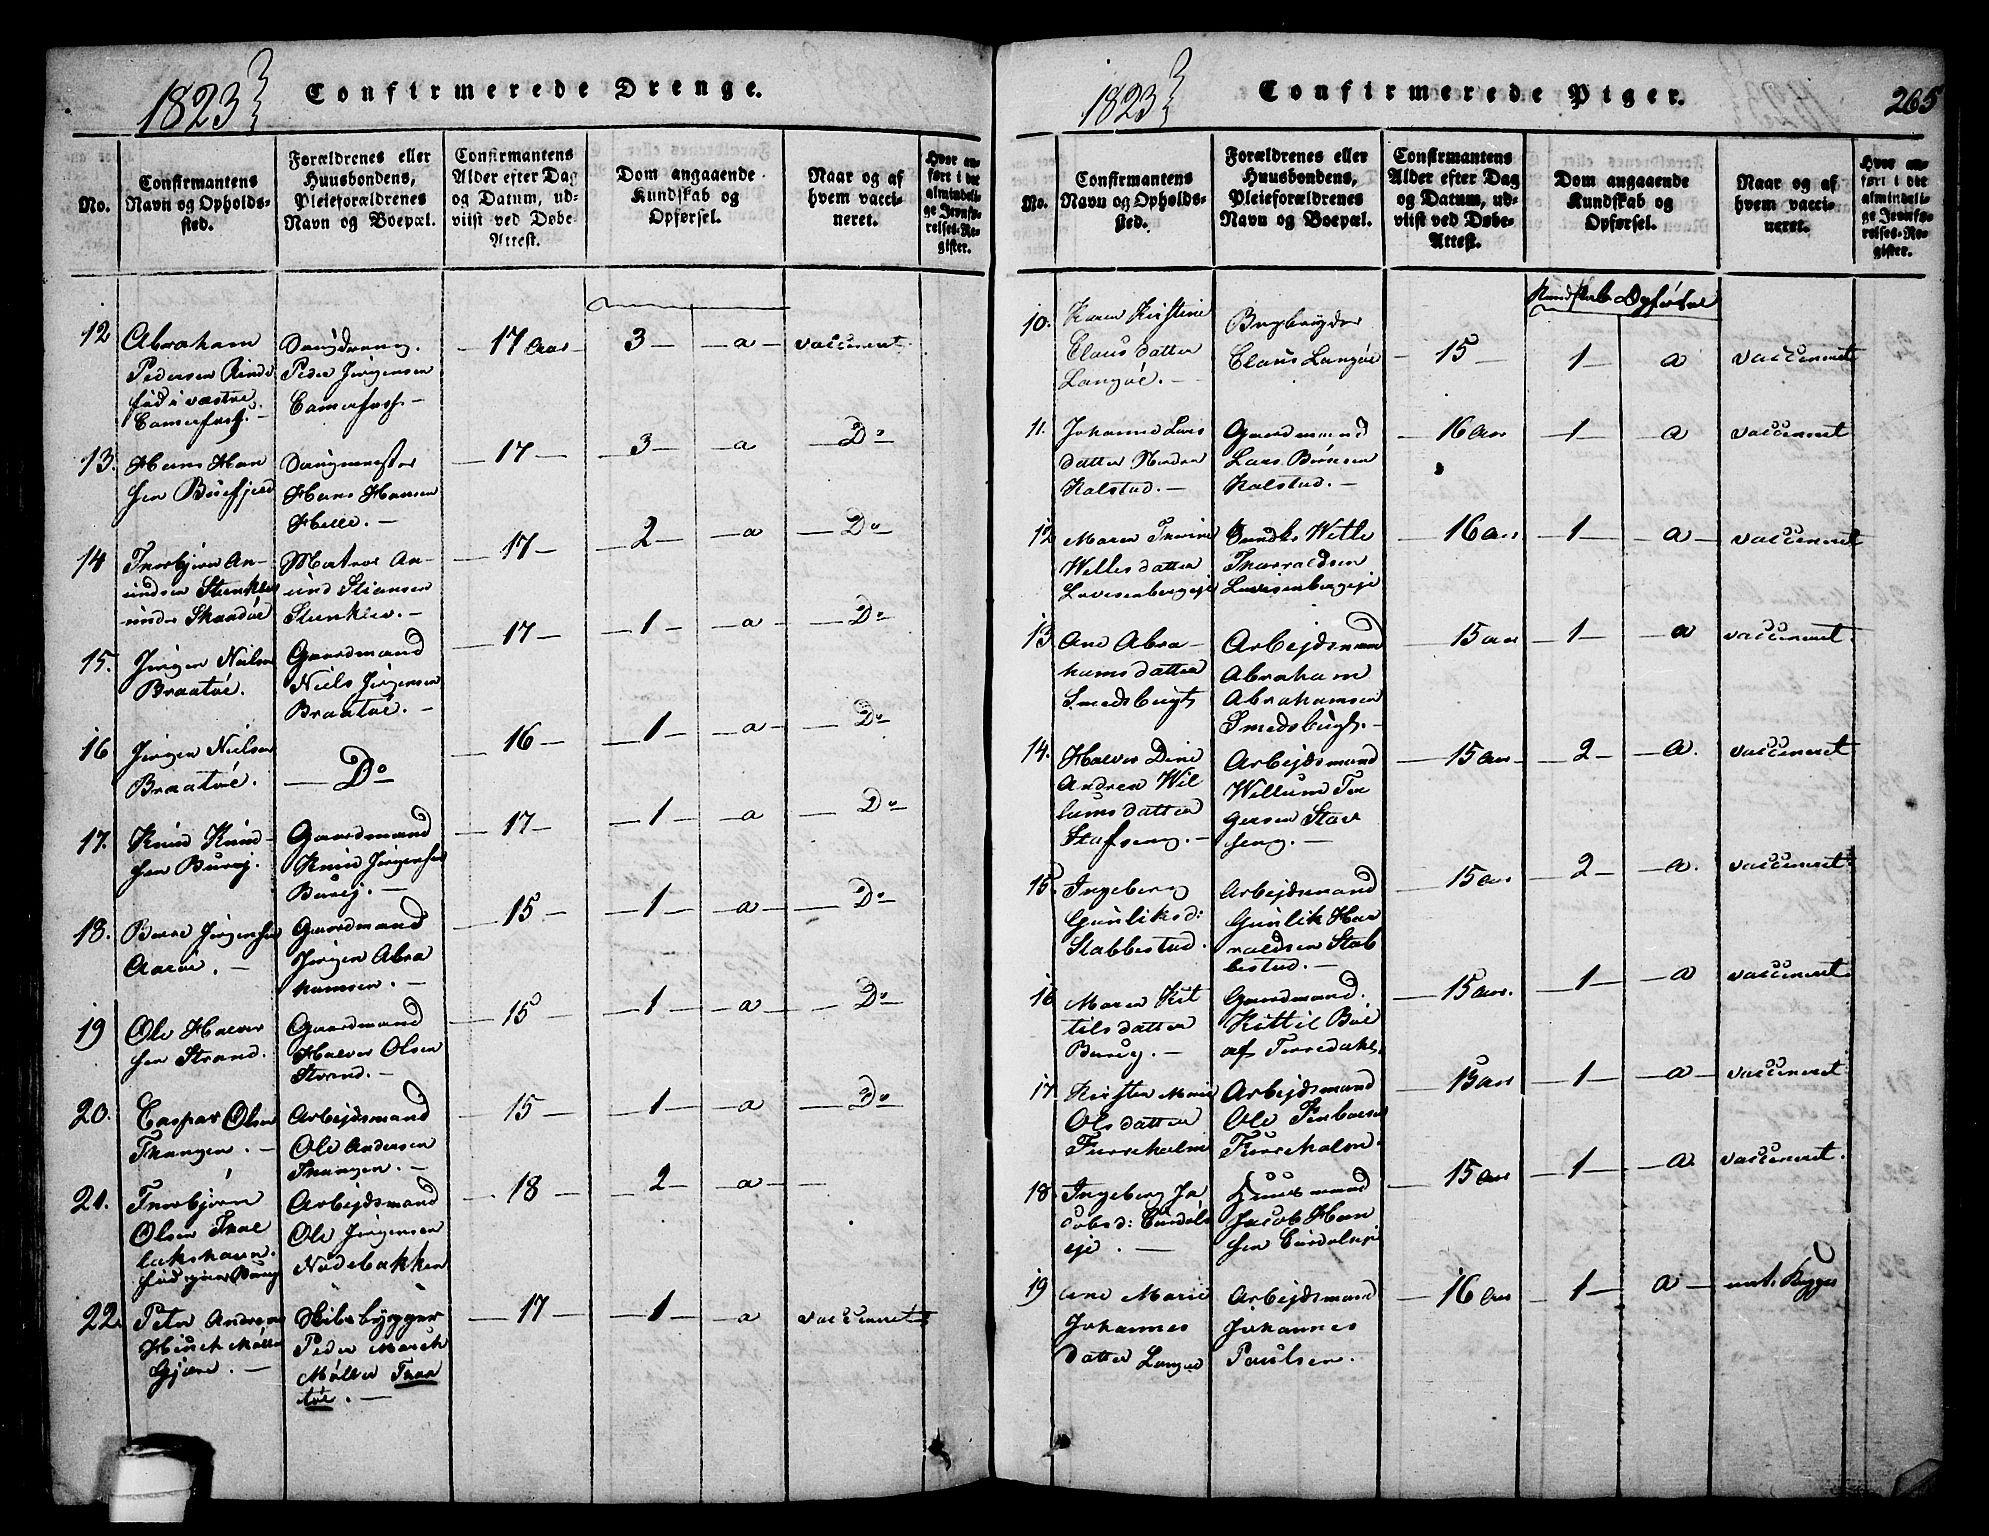 1823
Confirmerede Drenge.
No.
Confirmantens Navn og Opholdssted.
Forældrenes eller Huusbondens, Pleieforældrenes Navn og Boepæl.
Confirmantens Alder efter Dag og Datum, udviist ved Døbe-Attest.
Dom angaaende Kundskab og Opførsel.
Naar og af hvem vaccineret.
Hvor anført i det almindelige Jevnførelses-Register.
12
Abraham
Pedersen
Peder Jørgensen
17 Aar
3
a
vaccineret
13.
Hans Han
sen
Hans Hansen
Helle.
17
3
a
Do
14
Thorbjørn An-
undsen
under Skaadøe
Matros An-
und Stiansen
17
2
a
Do
15.
Jørgen Nielsen
Braatøe.
Gaardmand
Niels Jørgensen
Braatøe.
17
1
a
Do
16
Jørgen Nielsen
Braatøe.
Do
16
1
a
Do
17.
Knud Knud-
sen Burøj.
Gaardmand
Knud Jørgensen
Burøj.
17
1
a
Do
18.
Jørgensen
Aarøe.
Gaardmand
Jørgen Abra
hamsen.
15
1
a
Do
19
Ole Halvor
sen Strand.
Gaardmand
Halvor Olsen
Strand.
15
1
a
Do
20.
Caspar Olsen
Thangen.
Arbejdsmand
Ole Andersen
Thangen.
15
1
a
Do
21.
Thorbjørn
Olsen
Arbejdsmand
Ole Jørgensen
Nødebakken
18
2
a
22.
Peter Andreas
Møller
Gjære.
Skibsbygger
Peder March
Møller Traa
tøe.
17
1
a
vaccineret
1823
Confirmerede Piger.
265
No.
Confirmantens Navn og Opholdssted.
Forældrenes eller Huusbondens, Pleieforældrenes Navn og Boepæl.
Confirmantens Alder efter Dag og Datum, udviist ved Døbe-Attest.
Dom angaaende Kundskab og Opførsel.
Naar og af hvem vaccineret.
Hvor anført i det almindelige Jevnførelses-Register.
Kundskab Opførsel
10.
Karen Kirstine
Claus datter
Langøe.
Claus Langøe
15
1
a
vaccineret
11.
Johanne Lars
datter
Kalstad.
Gaardmand
Lars
Kalstad.
16 Aar
1
a
vaccineret
12
Maren Thorine
Willes datter
Wille
Tharaldsen
16 Aar
1
a
vaccineret
13
Ane Abra-
hamsdatter
Smedsbugt
Arbejdsmand
Abraham
Abrahamsen
Smedsbugt.
15 Aar
1
a
vaccineret.
14.
Andrea Wil
lumsdatter
Arbejdsmand
Willum Tor
gersen
15 Aar
2
a.
vaccineret
15.
Ingeborg
Gunliksd:
Stabbestad.
Arbejdsmand
Gunlik Har
raldsen Stab
bestad.
15 Aar
2
a.
vaccineret.
16
Maren Kit
tilsdatter
Burøj.
Gaardmand
Kittil Boe
af Torredahl.
15 Aar.
1
a
vaccineret.
17.
Kirsten Marie
Olsdatter
Furreholm
Arbejdsmand
Ole
Furreholm.
15 Aar
1
a
vaccineret
18.
Ingeborg Ja
cobsd:
eje.
Huusmand
Jacob Han
sen
15 Aar
1
a
vaccineret.
19
Ane Marie
Johannes
datter Langøe
Arbejdsmand
Johannes
Paulsen.
16 Aar
1
a